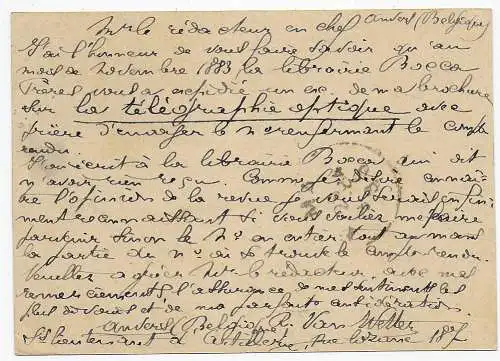 Mr le rédacteur en chef Anvers (Belgique)
J'ai l'honneur de vous faire savoir qu'au
mois de novembre 1883 la librairie Bocca
frères vous a expédié un ex. de ma brochure
sur la télégraphie optique avec
prière d'envoyer le No renfermant le compte
rendu.
J'ai écrit à la librairie Bocca qui dit
n'avoir rien reçu. Comme je désire connaî-
tre l'opinion de la revue je vous serais infini-
ment reconnaissant si vous vouliez me faire
parvenir sinon le No en entier tout au moins
la partie du No où se trouve le compte rendu.
Veuillez agréer Mr le rédacteur, avec mes
remerciements, l'assurance de mes sentiments les
plus dévoués et de ma parfaite considération.
Anvers (Belgique) R. Van Wetter
Lieutenant d'artillerie, rue 187